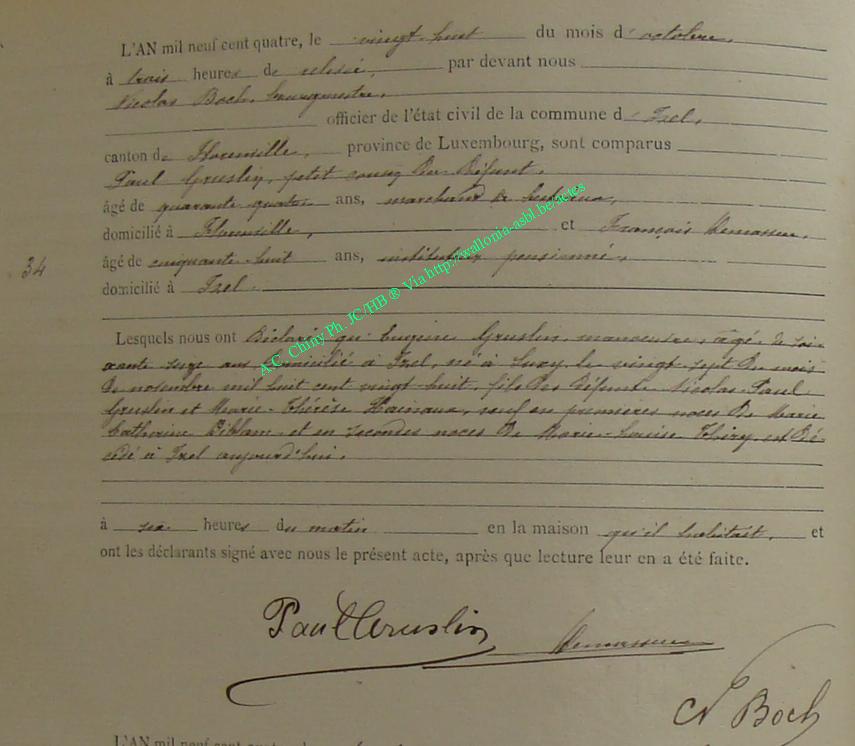 L'AN mil neuf cent quatre, le vingt-huit du mois d'octobre,
à trois heures de relevée, par devant nous
Nicolas Boch, bourgmestre,
officier de l'état civil de la commune d'Izel,
canton de Florenville, province de Luxembourg, sont comparus
Paul Gruslin, petit cousin du défunt,
âgé de quarante quatre ans, marchand de
domicilié à Florenville, et François
34
âgé de cinquante-huit ans, instituteur pensionné,
domicilié à Izel.
Lesquels nous ont déclaré qu'Eugène Gruslin, manoeuvre, âgé de soi-
xante seize ans domicilié à Izel, né à Suxy le vingt sept du mois
de novembre mil huit cent vingt huit, fils des défunts Nicolas-Paul
Gruslin et Marie-Thérèse Hainaux, veuf en premières noces de Marie
Catherine et en secondes noces de Marie-Louise Thiry, est dé-
cédé à Izel aujourd'hui,
à six heures du matin en la maison qu'il habitait, et
ont les déclarants signé avec nous le présent acte, après que lecture leur en a été faite.
Paul Gruslin
N Boch
L'AN mil neuf cent quatre
A.C. Chiny Ph. JC/HB ® Via http://wallonia-asbl.be/actes